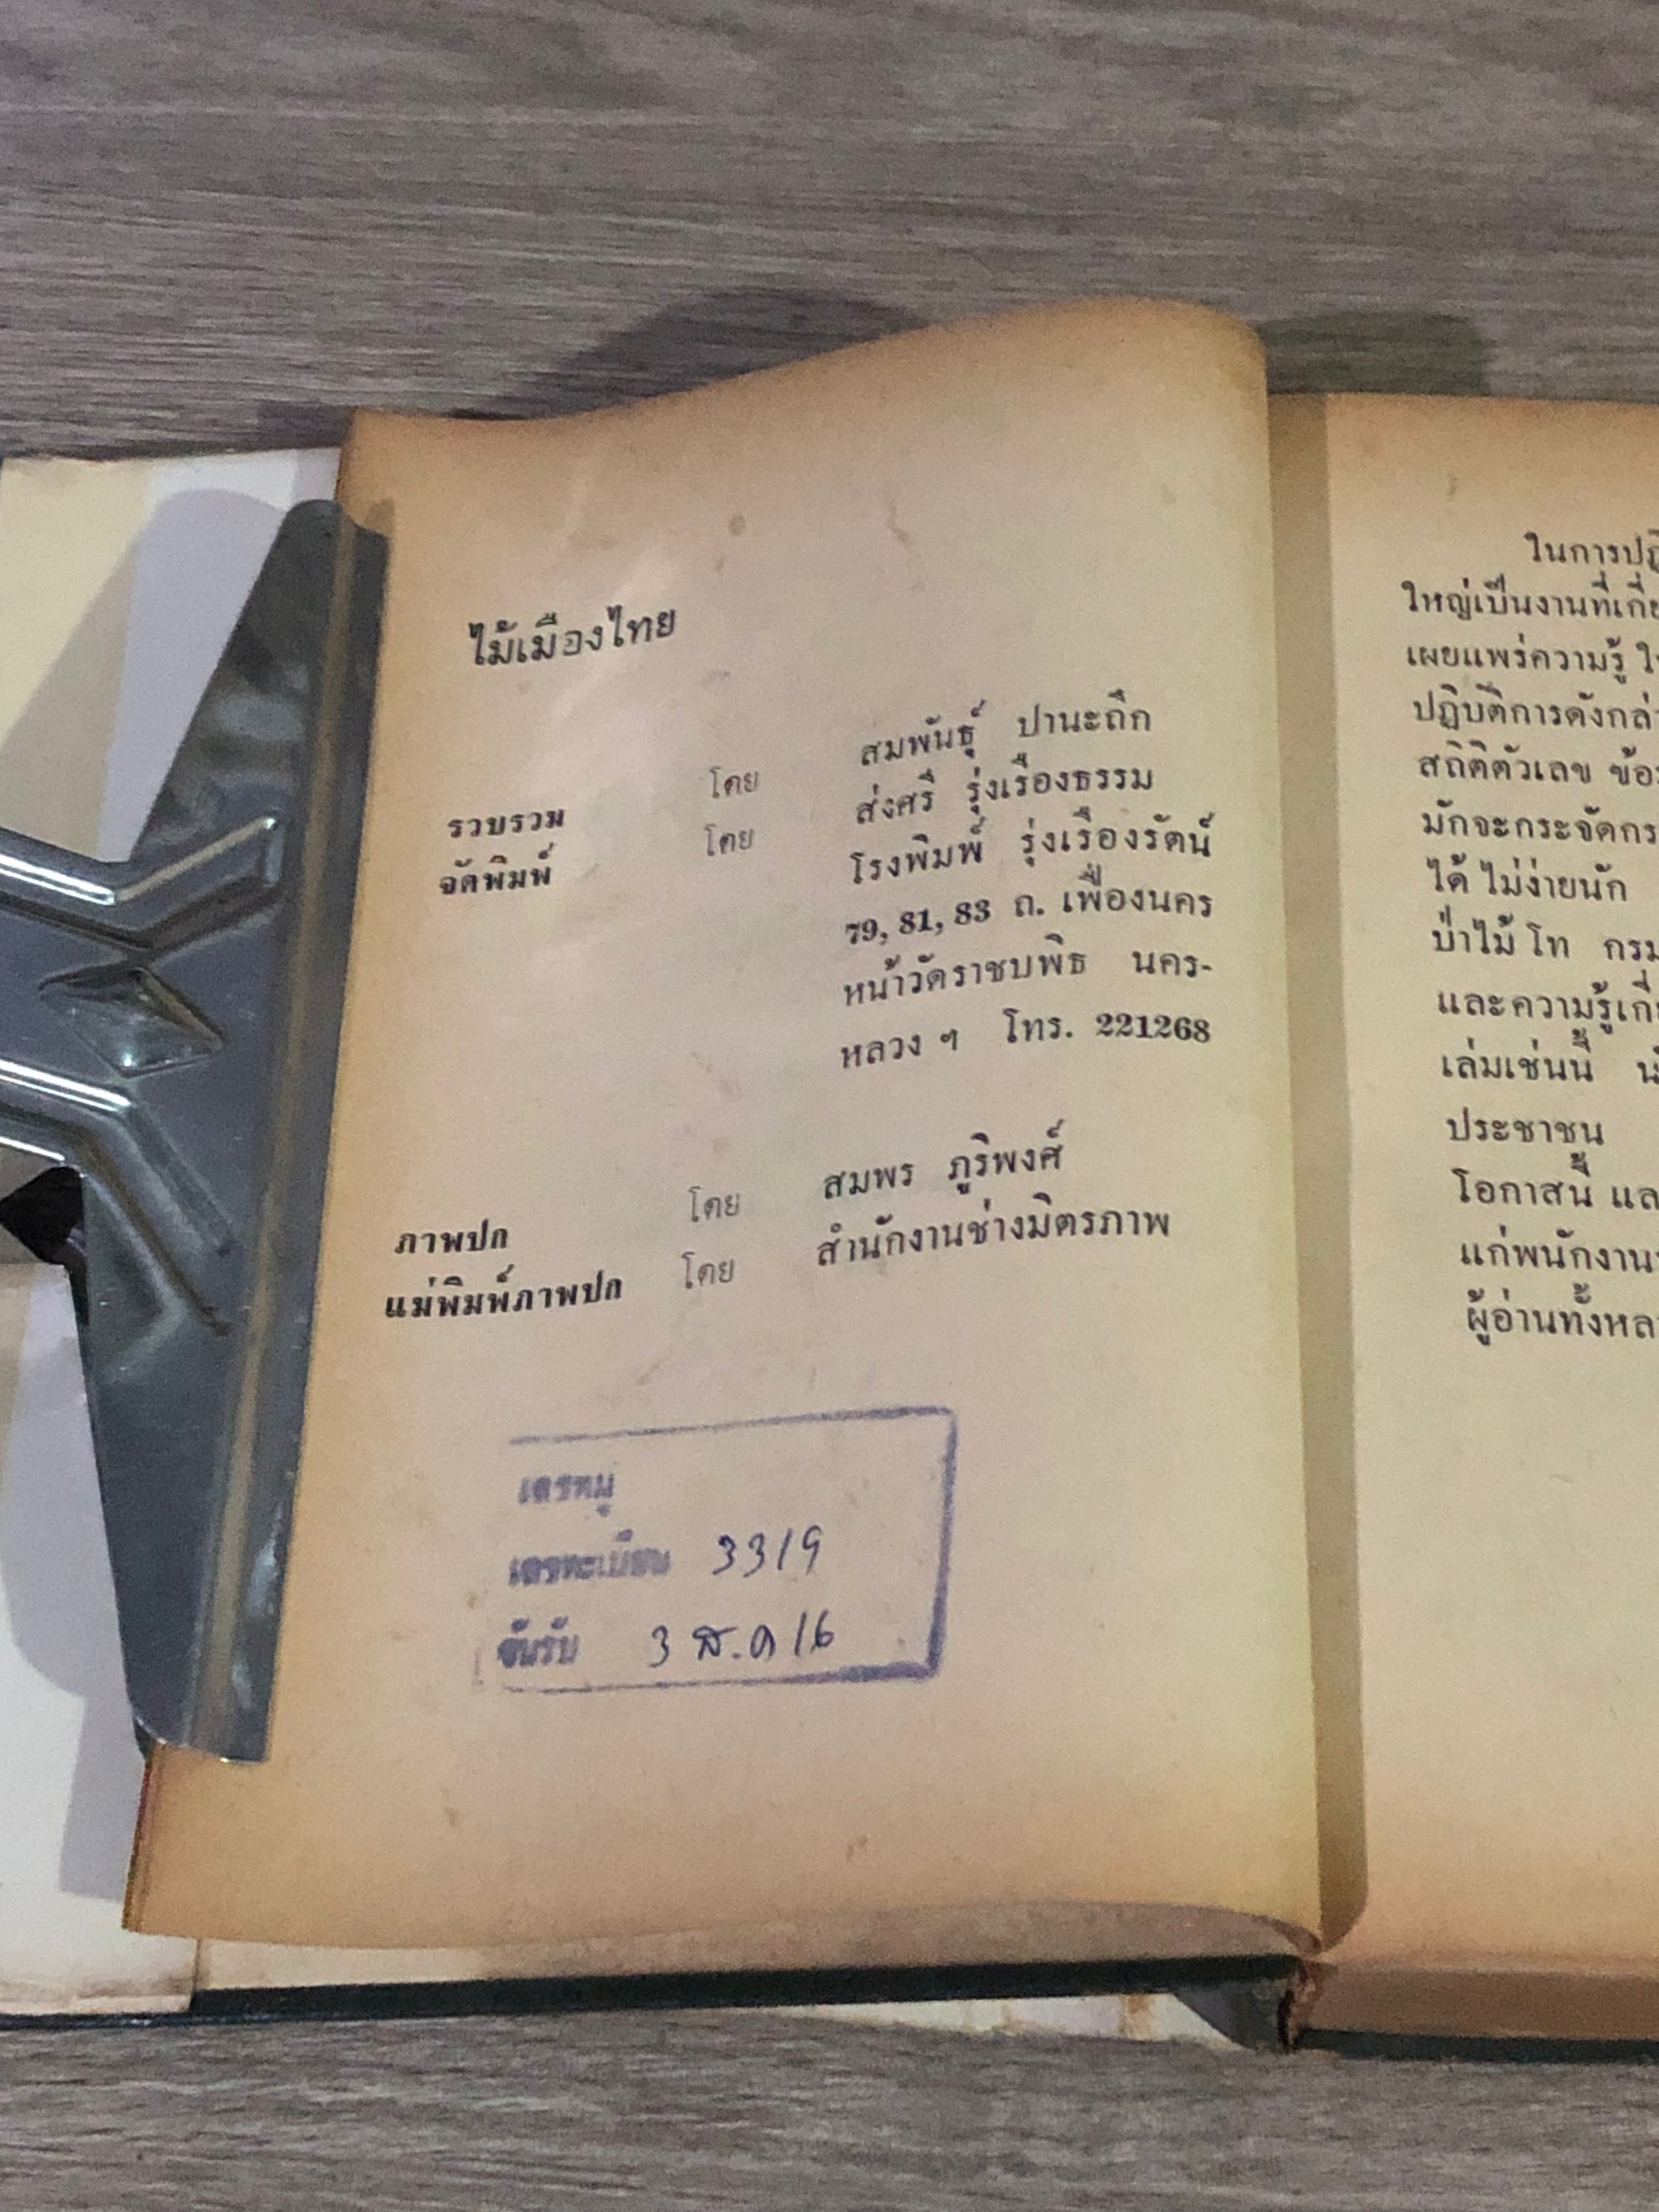 ไม้เมืองไทย
รวบรวม โดย สมพันธุ์ ปานะถึก
จัดพิมพ์ โดย ส่งศรี รุ่งเรืองธรรม
โรงพิมพ์ รุ่งเรืองรัตน์
79, 81, 83 ถ. เฟื่องนคร
หน้าวัดราชบพิธ นคร-
หลวง ฯ โทร. 221268
ภาพปก โดย สมพร ภูริพงศ์
แม่พิมพ์ภาพปก โดย สำนักงานช่างมิตรภาพ
เลขหมู่
เลขทะเบียน 3319
วันรับ 3 ส.ค 16
ในการปฏิ
ใหญ่เป็นงานที่เกี่ย
เผยแพร่ความรู้ ใ
ปฏิบัติการดังกล่า
สถิติตัวเลข ข้อ
มักจะกระจัดกร
ได้ ไม่ง่ายนัก
ป่าไม้ โท กรม
และความรู้เกี่
เล่มเช่นนี้ นั
ประชาชน
โอกาสนี้ แล
แก่พนักงาน
ผู้อ่านทั้งหล